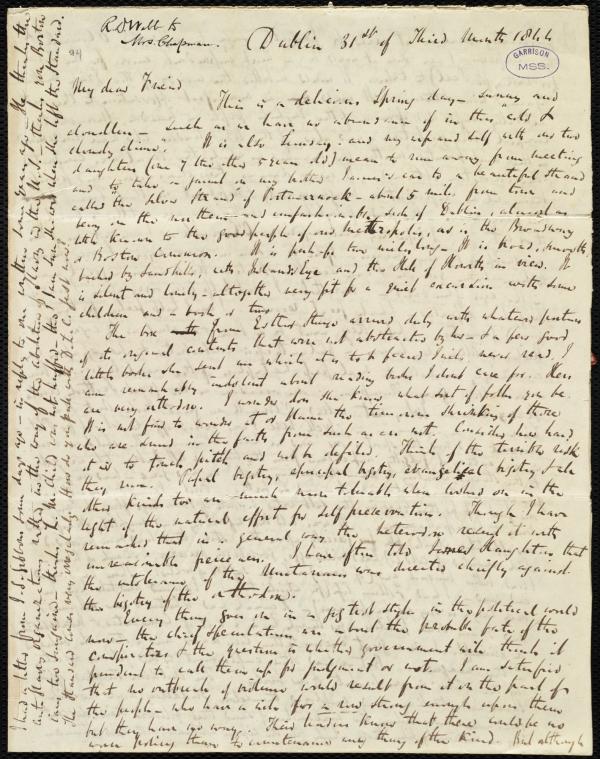 R. D. Webb to
Mrs. Chapman.
Dublin 31st of Third Month 1844
GARRISON
MSS.
My dear Friend
This is a delicious Spring day – sunny and
cloudless – such as we have no abundance of in this "cold &
cloudy clime". It is also Sunday: and my wife and self with our two
daughters (one 7 the other 5 years old) mean to run away from meeting
and to take a jaunt in my brother James's car to a beautiful strand
called the Silver Strand of Portmarnock – about 5 miles from town and
lying on the northern – and unfashionable side of Dublin, almost as
little known to the good people of our metropolis, as is the Broadway
or Boston Common. It is perhaps two miles long – It is broad, smooth
backed by Sandhills, with Irelands Eye and the Hill of Howth in view. It
is silent and lonely – altogether very fit for a quiet excursion with some
children and a book or two.
The box from Esther Sturge arrived duly with whatever portion
of its original contents that were not abstracted by her – & a few good
little books she sent me which it is to be feared I will never read. I
am remarkably indolent about reading books I don't care for. Hers
are very orthodox. I wonder does she know what sort of folks you be.
It is not fair to wonder at or blame the timorous shrinking of those
who are sound in the faith from such as are not. Consider how hard
it is to touch pitch and not be defiled. Think of the terrible risk
they run. Papal bigotry, episcopal bigotry, evangelical bigotry & all
other kinds too are much more tolerable when looked on in the
light of the natural effort for self preservation. Though I have
remarked that in a general way the heterodox repay it with
unreasonable fierceness. I have often told Haughton that
the intolerance of the Unitarians was directed chiefly against
the bigotry of the orthodox.
Every thing goes on in a jog trot style in the political world
now – the chief speculations are about the probable fate of the
conspirators & the question is whether government will think it
prudent to call them up for judgment or not. I am satisfied
that no outbreak of violence would result from it on the part of
the people – who have a
but they have no
Their leaders know that there could be no
worse policy than to countenance any thing of the kind. But although
I had a letter from J. S. Gibbons some days ago – in reply to one written some years ago – He thinks the
anti slavery organizations rather in the way of the abolition of slavery in the U.S. I think you Boston
The Standard looks very D. L. C. just now?